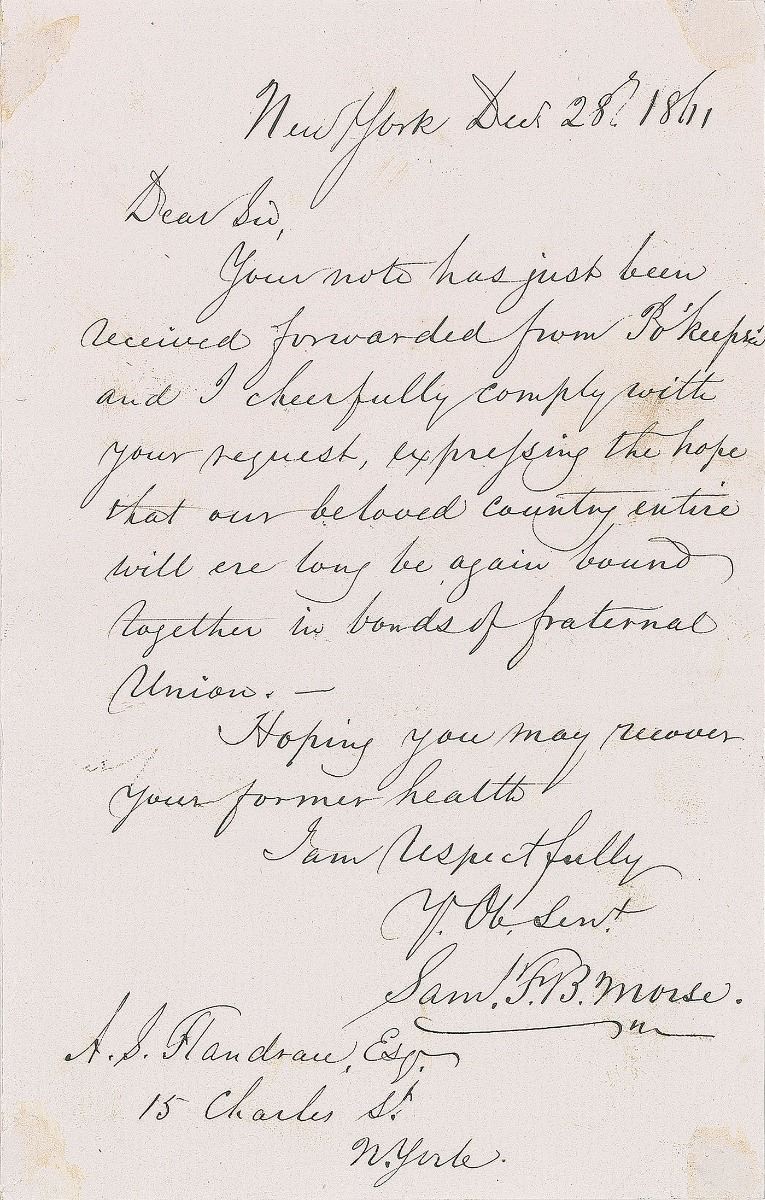 New York Dec. 28th 1861
Dear Sir,
Your note has just been
received forwarded from Po'keepsie
and I cheerfully comply with
your request, expressing the hope
that our beloved country entire
will ere long be again bound
together in bonds of fraternal
Union. —
Hoping you may recover
your former health
I am respectfully
Yr. Ob. Servt
Saml. F. B. Morse.
A. S. Flandrau, Esqr.
15 Charles St.
N. York.